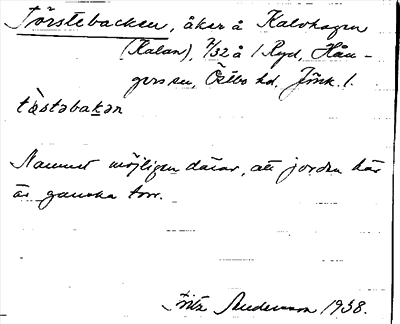 Törstebacken, åker å Kalvhagen
(Kalan), 7/32 å 1 Ryd, Hån-
ger sn, Östbo hd, Jönk. l.
tǟstəbakən
Namnet möjligen därav, att jorden här
är ganska torr.
Fritz Andersson 1938.